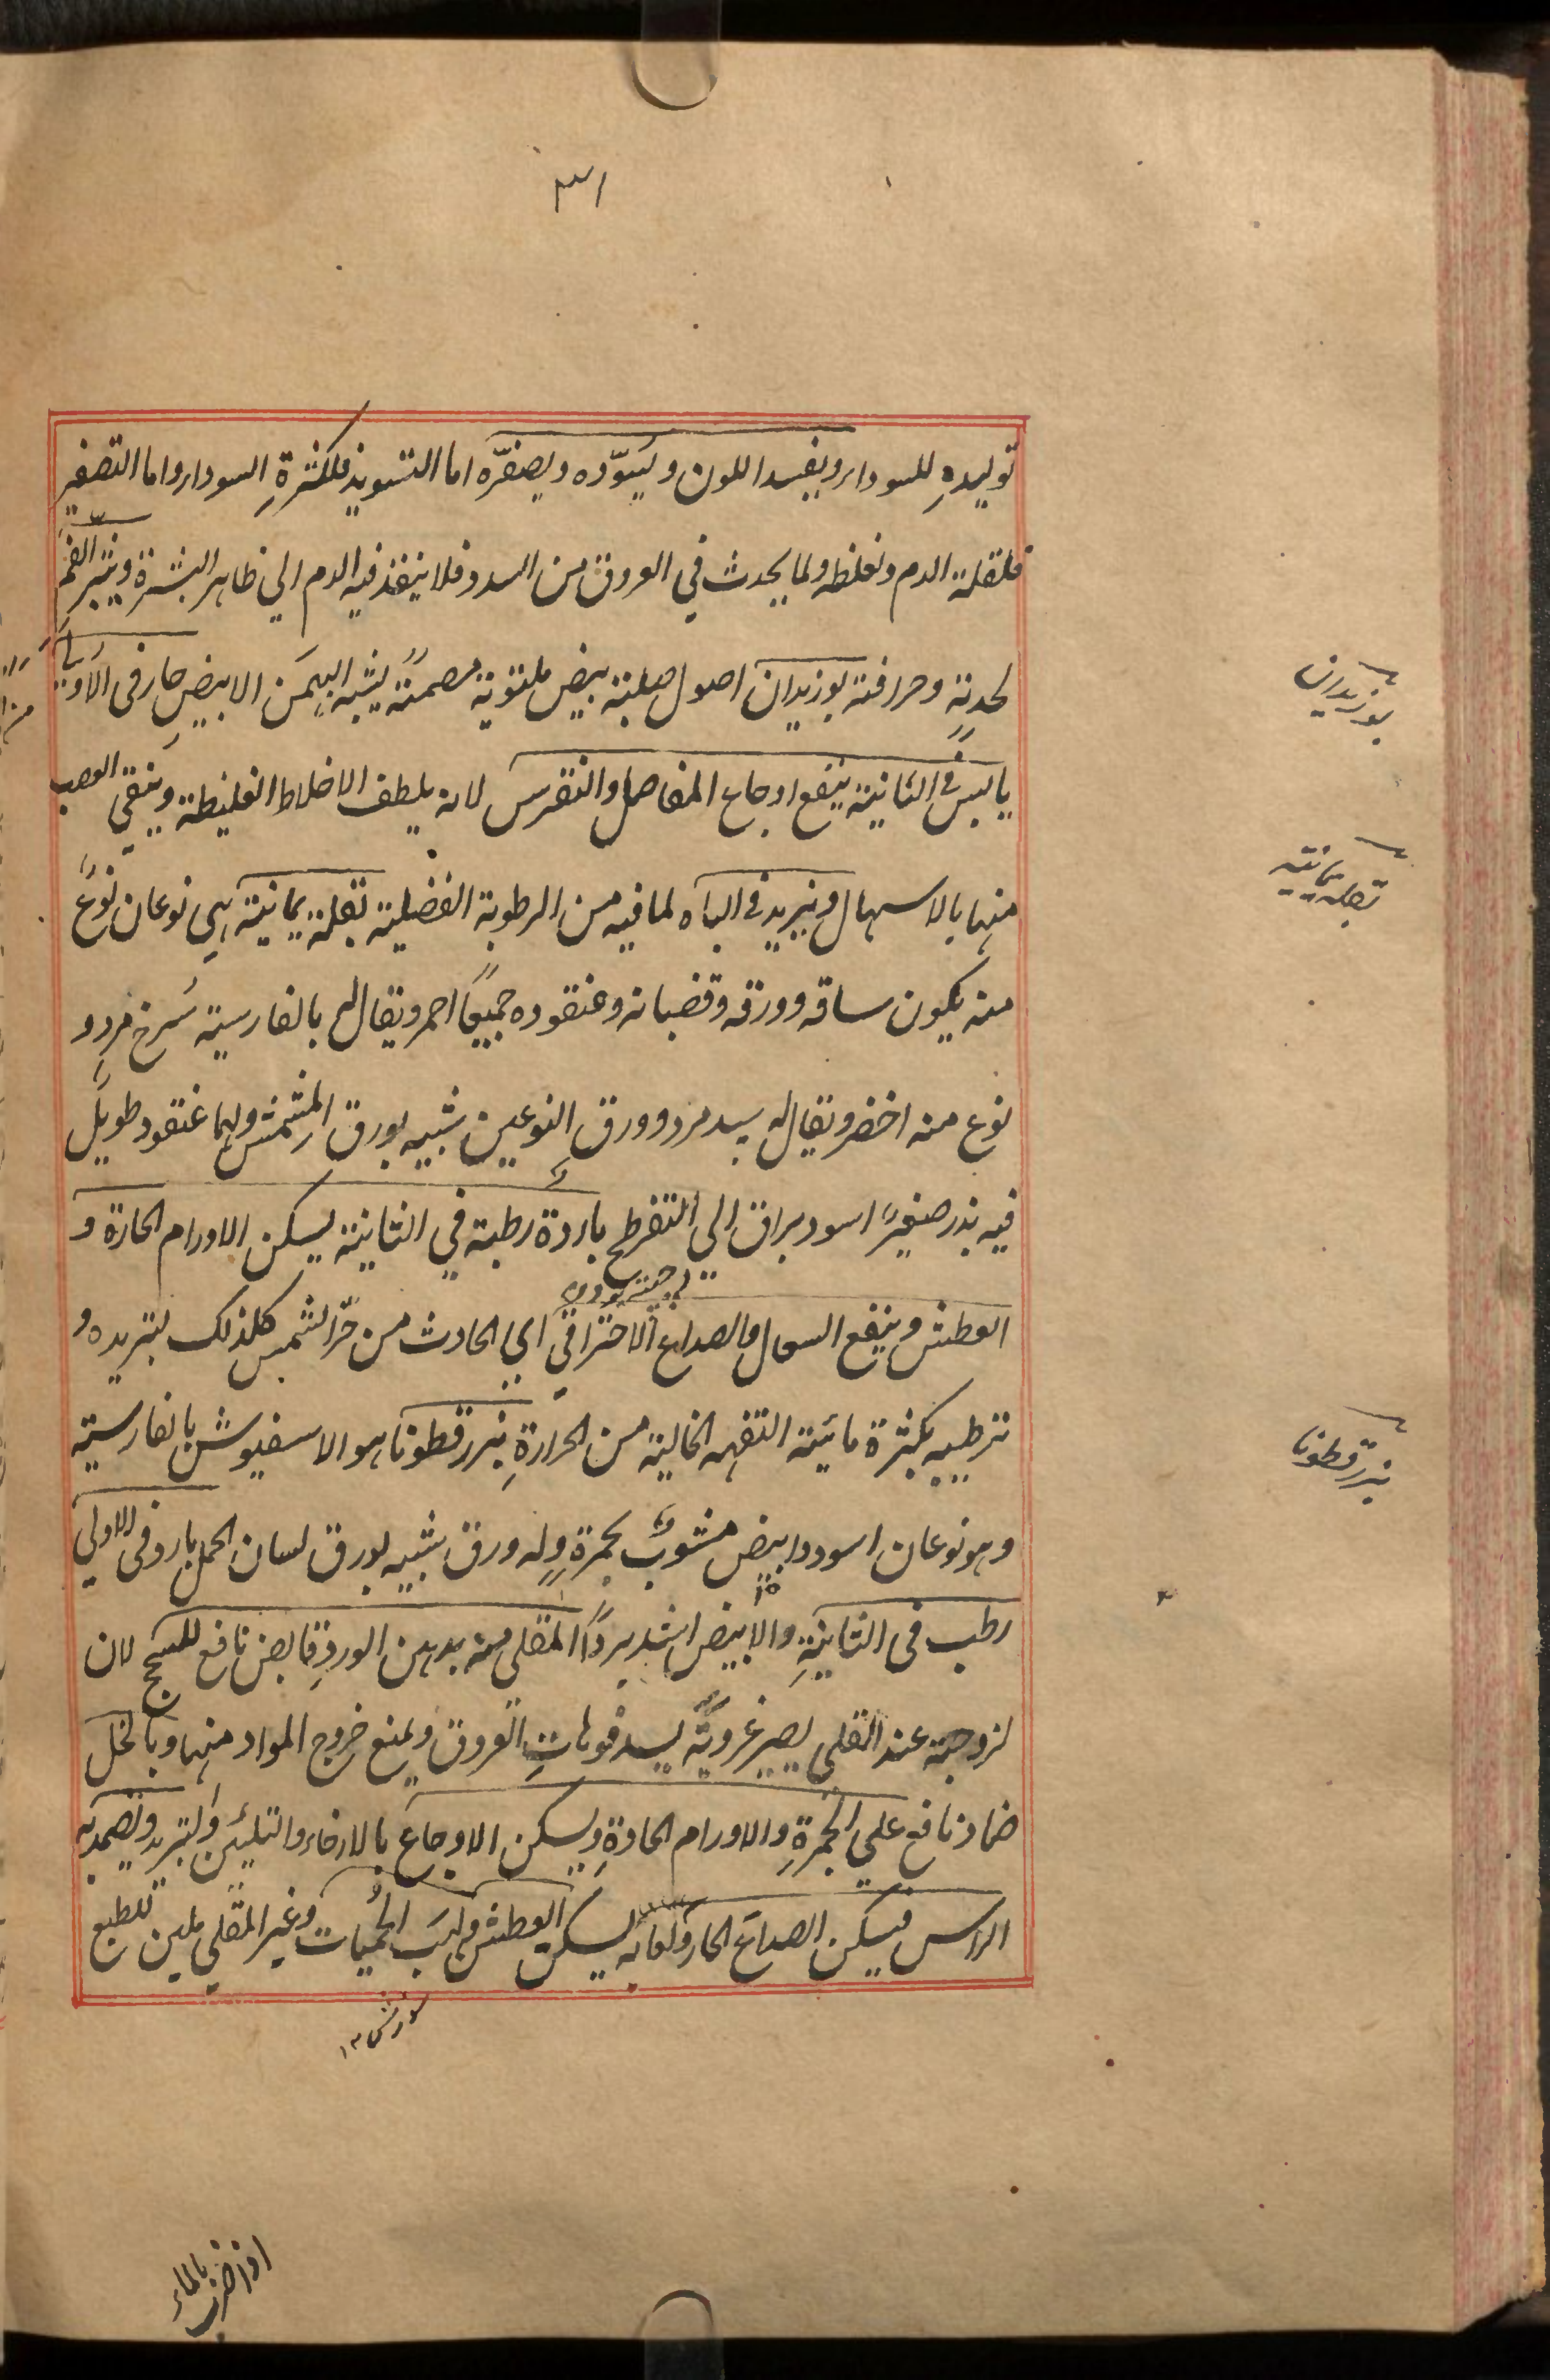 ۳۱
توليدهِ للسوداء ويفسد اللون ويسوّده ويصفرّه اما التسويد فلكثرةِ السوداء واما التصفير
فلقلة الدم وغلظه ولما يحدث في العروق من السدد فلا ينفذ فيه الدم الي ظاهر البشرة ويبثر الفم
لحدته وحرافته بوزيدان اصول صلبة بيض ملتوية مصمتة يشبه البهمن الابيض حار في الاولي
يابس في الثانية ينفع اوجاع المفاصل والنقرس لانه يلطف الاخلاط الغليظة وينقي العصب
منها بالاسهال ويزيد في الباه لما فيه من الرطوبة الفضلية بقلة يمانية هي نوعان نوع
منه يكون ساقه وورقه وقضبانه وعنقوده جميعًا احمر ويقال له بالفارسية سرخ مرد و
نوع منه اخضر ويقال له سبد مرد وورق النوعين شبيه بورق المشمش ولهما عنقود طويل
فيه بذر صغير اسود براق الي التفرطح باردة رطبة في الثانية يسكن الاورام الحارة و
العطش وينفع السعال والصداع الاحتراقي اي الحادث من حرّ الشمس كلذلك لتبريده و
ترطيبه بكثرة مائيته التفهه الخالية من الحرارةِ بزرقطونا هو الاسفيوش بالفارسية
وهو نوعان اسود وابيض مشوب بحمرة وله ورق شبيه بورق لسان الحمل بارد في الاولي
رطب في الثانيةِ والابيض اشد بردًا المقلي منه بدهن الوردِ قابض نافع للسحج لان
لزوجته عند القلي يصير غرويةً يسد فوهاتِ العروق ويمنع خروج المواد منها وبالخل
ضماد نافع علي الجمرةِ والاورام الحادةِ ويسكن الاوجاع بالارخاء والتليين والتبريد ويضمد به
الراس فيسكن الصداع الحار ولعابه يسكن العطش ولهب الحُميات وغير المقلي ملين للطبع
سوزش ۱۲
بوزيدان
بقله يمانيه
بزرقطونا
اذا ضرب بالماء